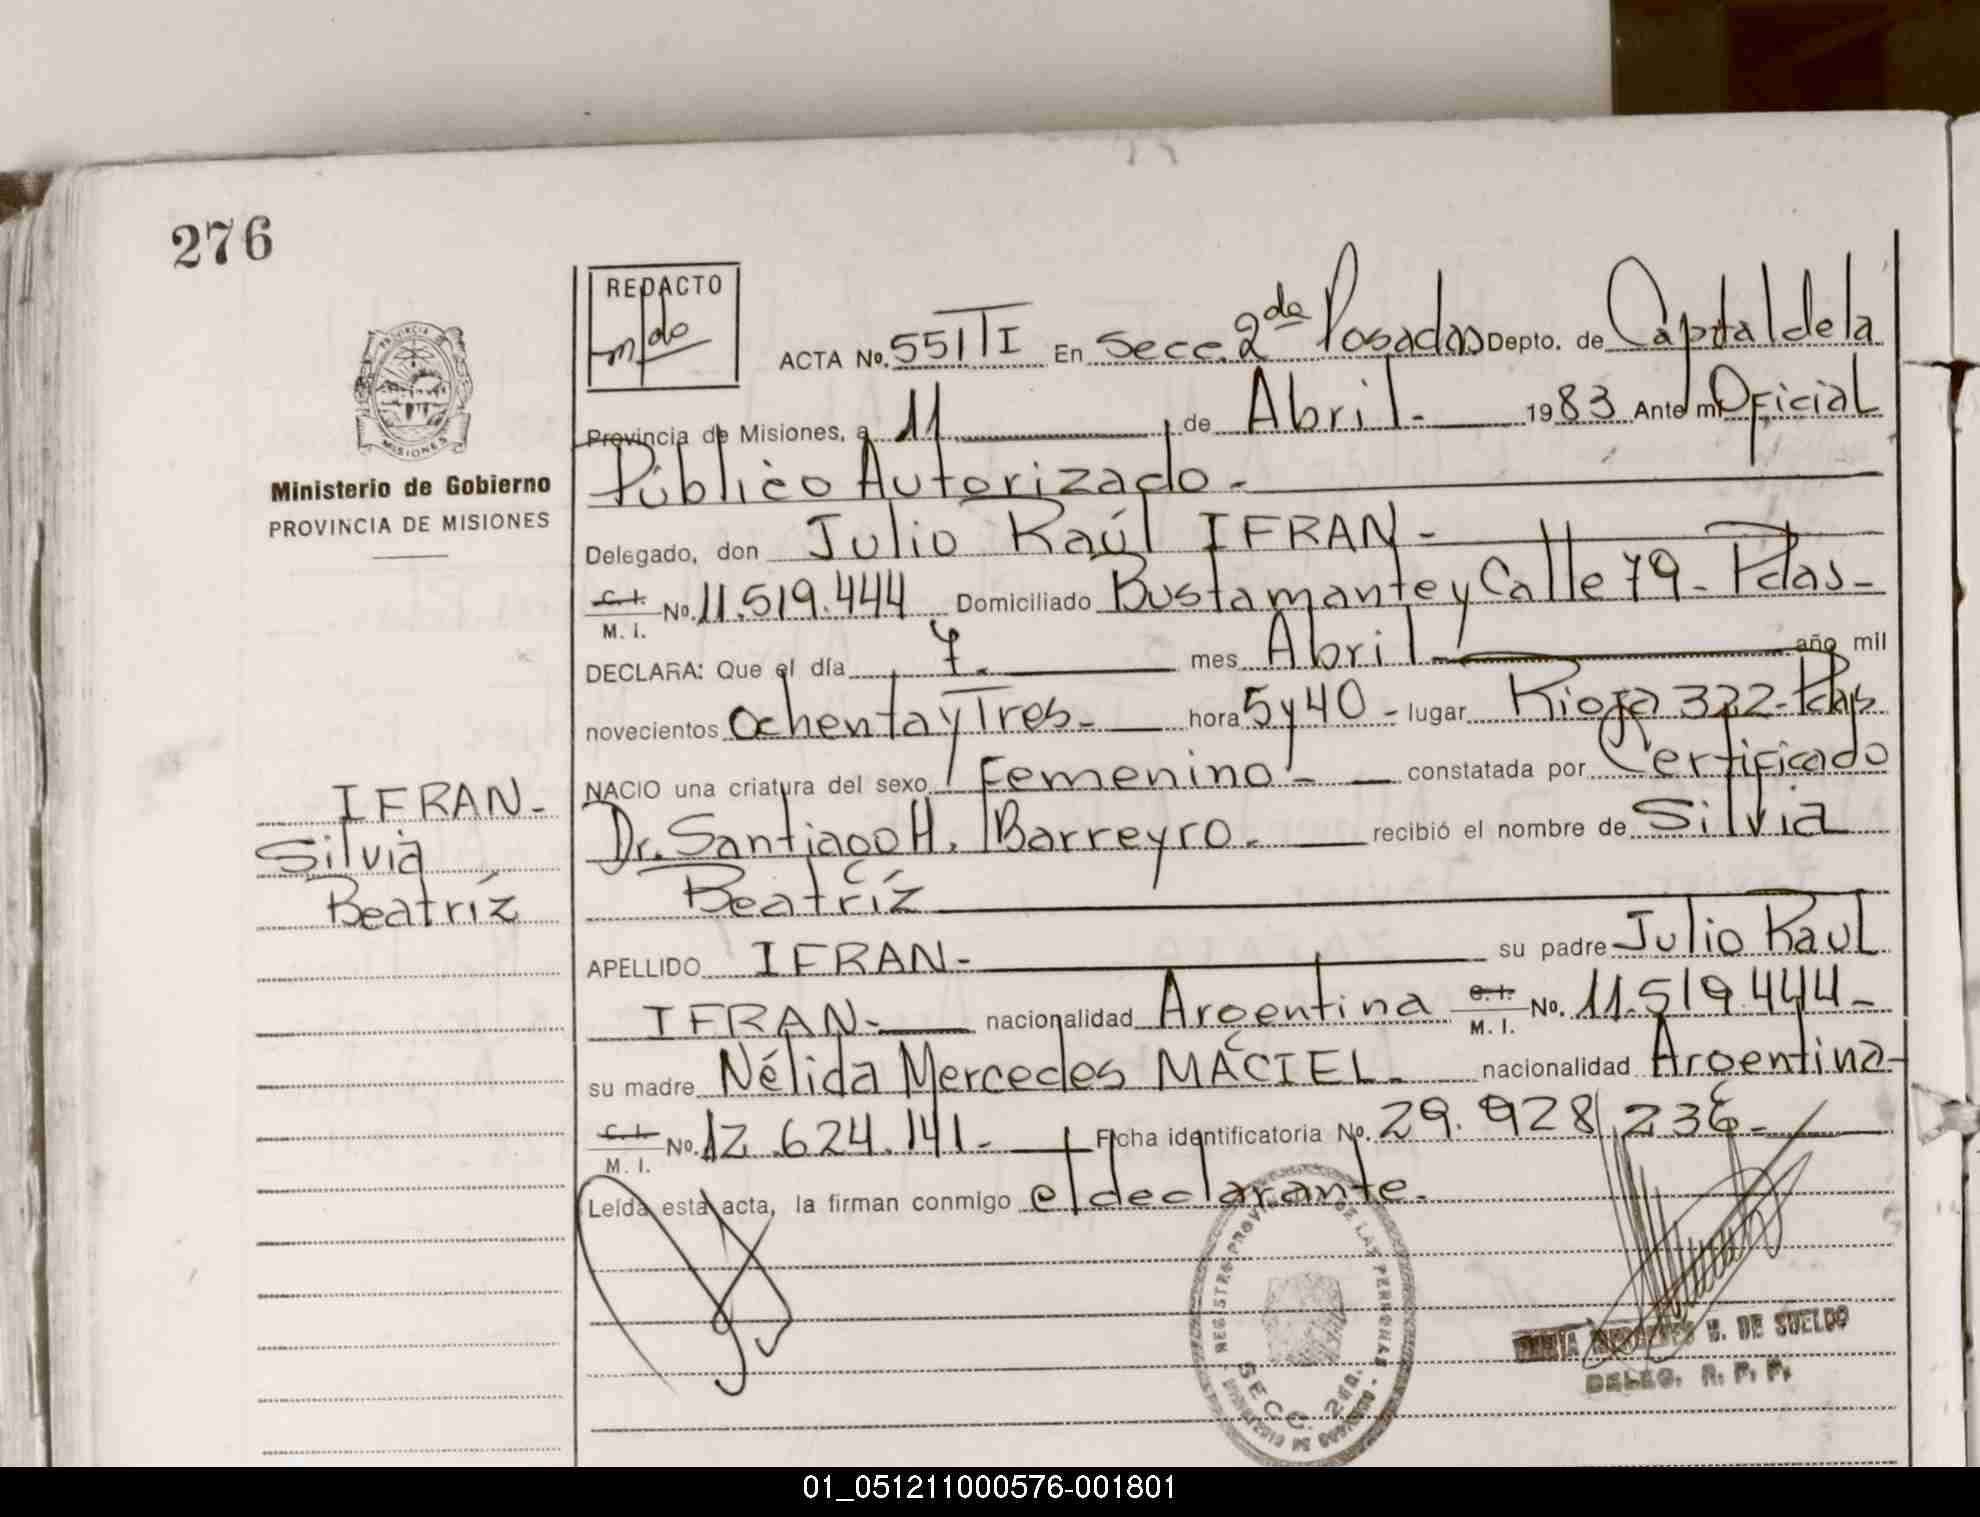 276
REDACTO
ACTA No. 551 TI En Secc. 2da Posadas Depto. de Capital de la
Provincia de Misiones, a 11 de Abril - 1983 Ante mi Oficial
PROVINCIA
MISIONES
Ministerio de Gobierno
PROVINCIA DE MISIONES
Público Autorizado -
Delegado, don Julio Raúl IFRAN -
C. I. M. I. No. 11.519.444 Domiciliado Bustamante y Calle 79 - Pdas -
DECLARA: Que el día 7 - mes Abril - año mil
novecientos Ochenta y Tres - hora 5 y 40 - lugar Rioja 322 - Pdas
NACIO una criatura del sexo Femenino - constatada por Certificado
IFRAN -
Silvia
Beatríz
Dr. Santiago H. Barreyro - recibió el nombre de Silvia
Beatríz
APELLIDO IFRAN - su padre Julio Raul
IFRAN - nacionalidad Argentina C. I. M. I. No. 11.519.444 -
su madre Nélida Mercedes MACIEL - nacionalidad Argentina -
C. I. M. I. No. 12.624.141 - Ficha identificatoria No. 29.928.236 -
Leída esta acta, la firman conmigo el declarante.
REGISTRO DE LAS PERSONAS
SECC. 2da.
DE SUELDO
DELEG. R. P. P.
01_051211000576-001801